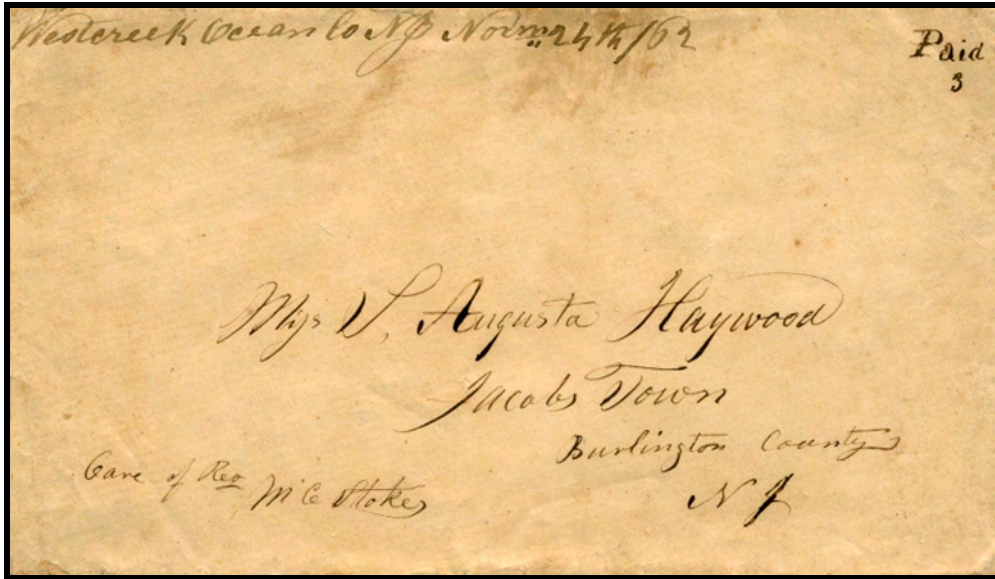 Westcreek Ocean Co NJ Novm 24th/62
Paid
3
Miss S. Augusta Haywood
Jacobs Town
Burlington County
N J
Care of Rev
M C Stokes